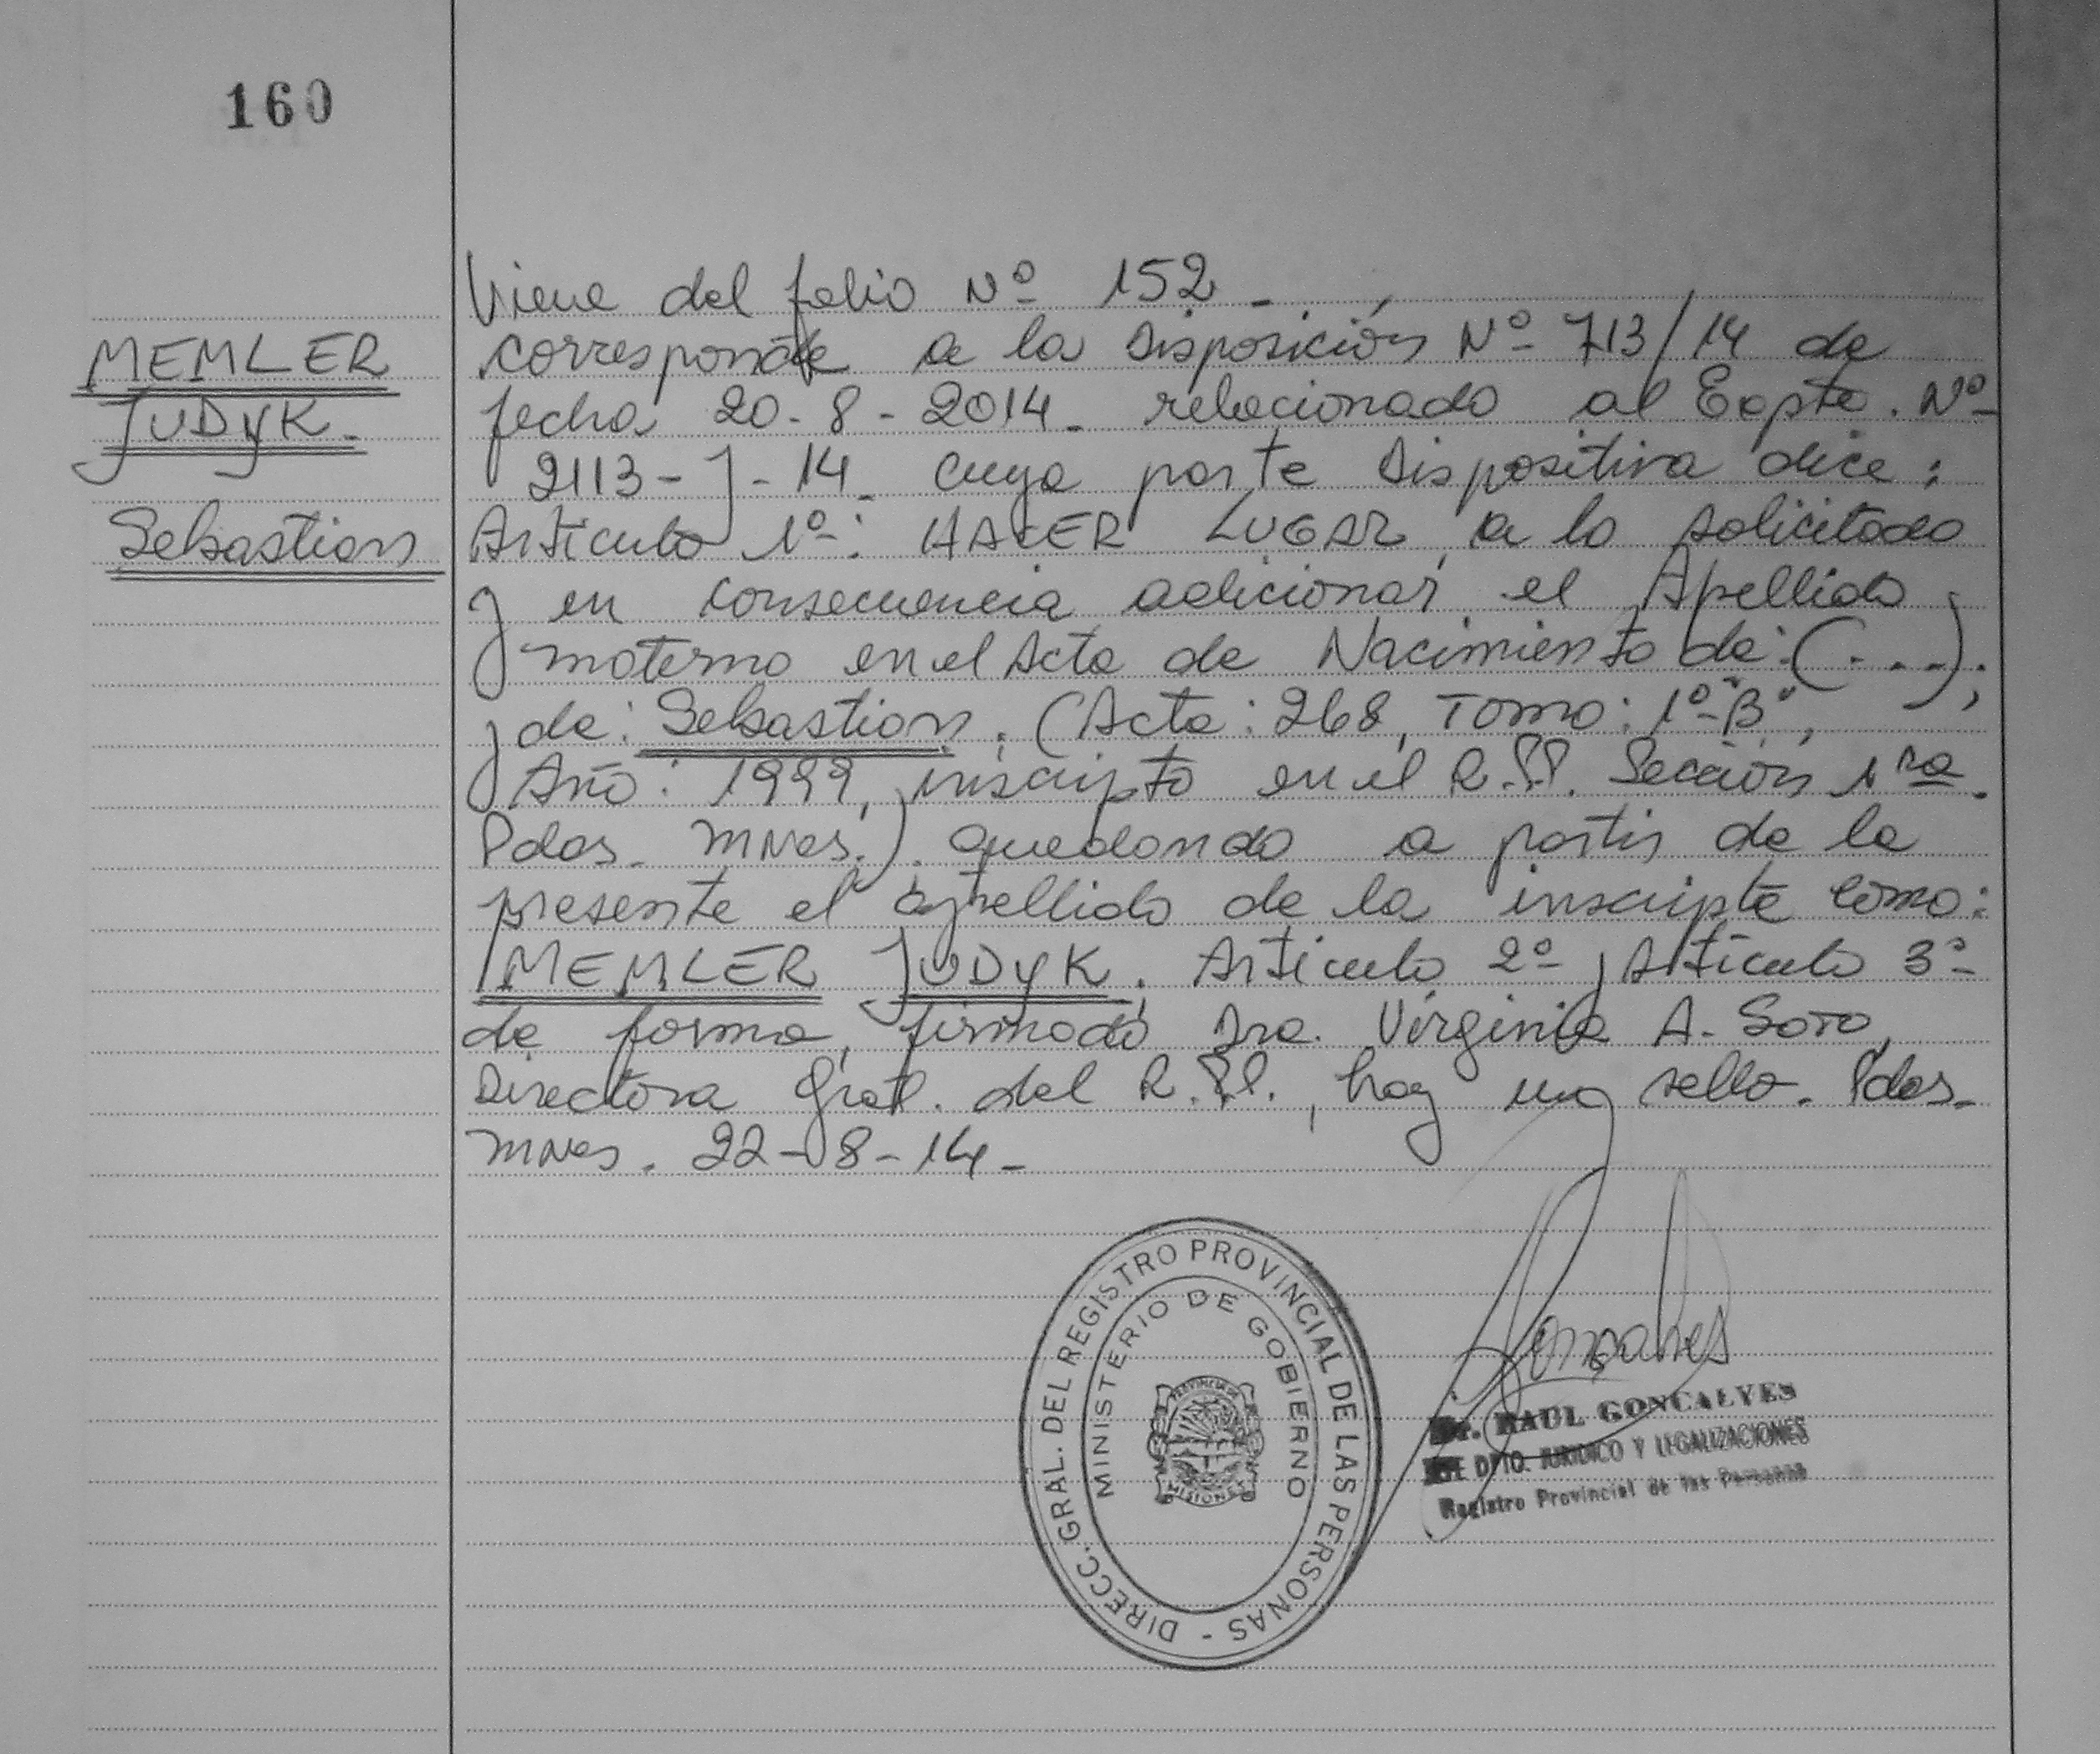 160
MEMLER
JUDYK.
Sebastian
Viene del folio Nº 152.-
corresponde a la Disposición Nº 713/14 de
fecha 20-8-2014. relacionado al Expte. Nº
2113-J-14. cuya parte Dispositiva dice:
Artículo 1º: HACER LUGAR a lo solicitado
y en consecuencia adicionar el Apellido
materno en el Acta de Nacimiento de: (...);
y de: Sebastian. (Acta: 268, Tomo: 1º-"B",
Año: 1999, inscripto en el R.P.P. Sección 1ra.
Pdas. Mnes.). quedando a partir de la
presente el apellido de la inscripta como:
MEMLER JUDYK. Artículo 2º y Artículo 3º
de forma, firmado Dra. Virginia A. Soto,
Directora Gral. del R.P.P., hay un sello. Pdas.
Mnes. 22-8-14.-
DIRECC. GRAL. DEL REGISTRO PROVINCIAL DE LAS PERSONAS -
MINISTERIO DE GOBIERNO
PROVINCIA DE
MISIONES
Goncalves
Dr. RAUL GONCALVES
JEFE DPTO. JURIDICO Y LEGALIZACIONES
Registro Provincial de las Personas